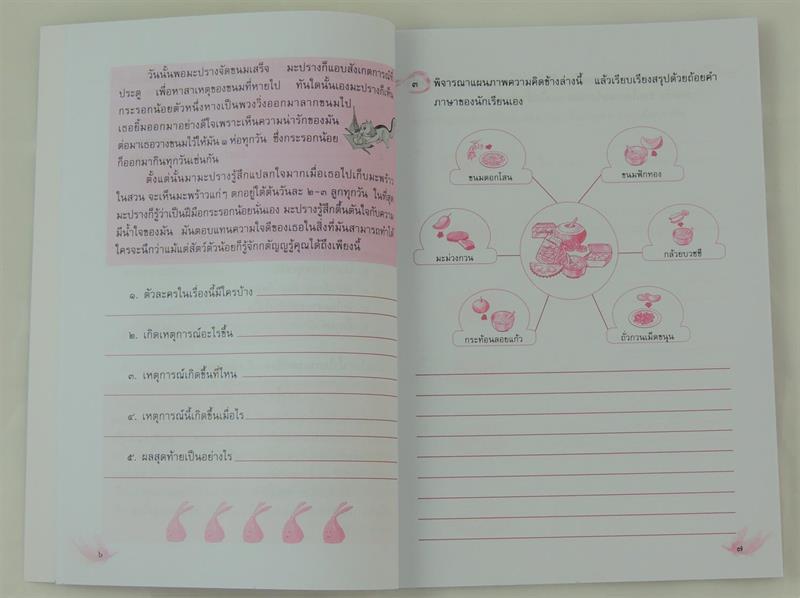 วันนั้นพอมะปรางจัดขนมเสร็จ มะปรางก็แอบสังเกตการณ์ที่
ประตู เพื่อหาสาเหตุของขนมที่หายไป ทันใดนั้นเองมะปรางก็เห็น
กระรอกน้อยตัวหนึ่งหางเป็นพวงวิ่งออกมาลากขนมไป
เธอยิ้มออกมาอย่างดีใจเพราะเห็นความน่ารักของมัน
ต่อมาเธอวางขนมไว้ให้มัน ๑ ห่อทุกวัน ซึ่งกระรอกน้อย
ก็ออกมากินทุกวันเช่นกัน
ตั้งแต่นั้นมามะปรางรู้สึกแปลกใจมากเมื่อเธอไปเก็บมะพร้าว
ในสวน จะเห็นมะพร้าวแก่ๆ ตกอยู่ใต้ต้นวันละ ๒-๓ ลูกทุกวัน ในที่สุด
มะปรางก็รู้ว่าเป็นฝีมือกระรอกน้อยนั่นเอง มะปรางรู้สึกตื้นตันใจกับความ
มีน้ำใจของมัน มันตอบแทนความใจดีของเธอในสิ่งที่มันสามารถทำได้
ใครจะนึกว่าแม้แต่สัตว์ตัวน้อยก็รู้จักกตัญญูรู้คุณได้ถึงเพียงนี้
๑. ตัวละครในเรื่องนี้มีใครบ้าง
๒. เกิดเหตุการณ์อะไรขึ้น
๓. เหตุการณ์เกิดขึ้นที่ไหน
๔. เหตุการณ์นี้เกิดขึ้นเมื่อไร
๕. ผลสุดท้ายเป็นอย่างไร
๖
๓ พิจารณาแผนภาพความคิดข้างล่างนี้ แล้วเรียบเรียงสรุปด้วยถ้อยคำ
ภาษาของนักเรียนเอง
ขนมดอกโสน
ขนมฟักทอง
มะม่วงกวน
กล้วยบวชชี
กระท้อนลอยแก้ว
ถั่วกวนเม็ดขนุน
๗